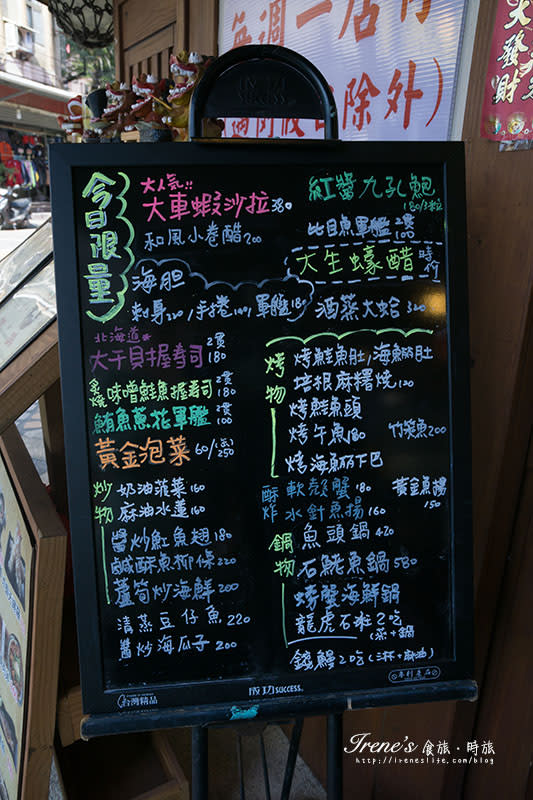 今日限量
大人氣!!
大車蝦沙拉 380
和風小卷醋 200
海胆
刺身 220 / 手卷 100 / 軍艦 180
北海道
大干貝握壽司 2貫 180
炙燒 味噌鮭魚握壽司 2貫 180
鮪魚蔥花軍艦 2貫 100
黃金泡菜 60/ 250
炒物
奶油菠菜 160
麻油水蓮 160
醬炒魟魚翅 180
鹹酥魚柳條 220
蘆筍炒海鮮 200
清蒸豆仔魚 220
醬炒海瓜子 200
紅蟳九孔鮑
180/3粒
比目魚軍艦 2貫 100
大生蠔醋 時價
酒蒸大蛤 320
烤物
烤鮭魚肚/海鱺肚
培根麻糬燒 120
烤鮭魚頭
烤午魚 180
竹筴魚 200
烤海鱺下巴
酥炸
軟殼蟹 180
黃金魚揚 150
水針魚揚 160
鍋物
魚頭鍋 420
石鮔魚鍋 580
螃蟹海鮮鍋
龍虎石斑 2吃
鱸鰻 2吃
台灣精品
成功 SUCCESS
專利產品
大發財
除外)
Irene's 食旅‧時旅
http://ireneslife.com/blog